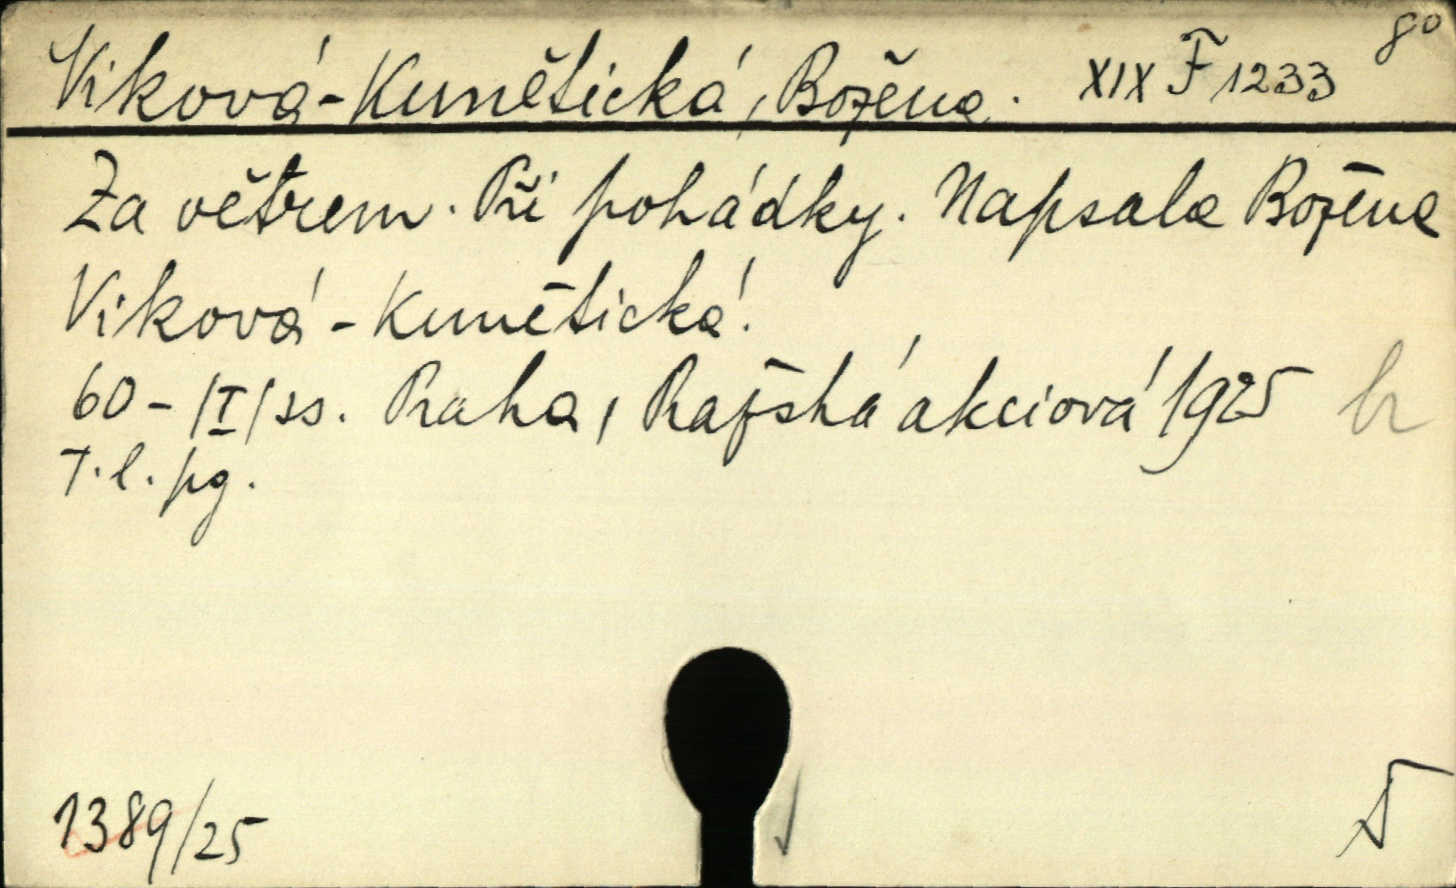 8°
Viková-Kunětická, Božena. XIX F 1233
Za větrem. Při pohádky. Napsala Božena
Viková-Kunětická.
60-/I/ss. Praha, Pražská akciová 1925
T.l. pg.
1389/25